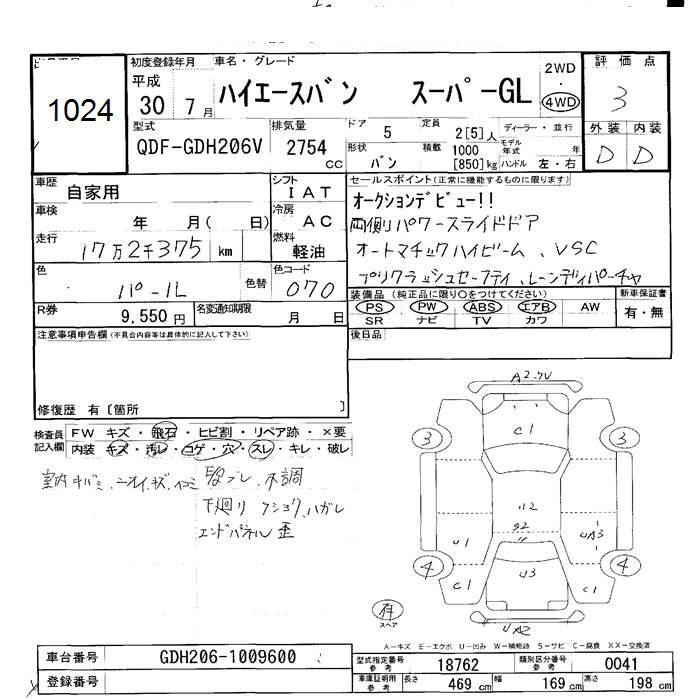 1024
初度登録年月 車名・グレード
平成 30 7月 ハイエースバン スーパーGL 2WD 4WD
評価点 3
型式 排気量 ドア 5 定員 2[5]人 ディーラー・並行
外装 内装
QDF-GDH206V 2754 cc 形状 バン 積載 1000 [850]kg モデル年式 年 ハンドル 左・右
D D
車歴 自家用 シフト IAT
セールスポイント(正常に機能するものに限ります)
オークションデビュー!!
車検 年 月( 日) 冷房 AC
両側パワースライドドア
走行 17万2千375 km 燃料 軽油
オートマチックハイビーム、VSC
色 パール 色替 色コード 070
プリクラッシュセーフティ、レーンディパーチャ
装備品(純正品に限り○をつけてください) 新車保証書
R券 9,550円 名変通知期限 月 日
PS PW ABS エアB AW 有・無
SR ナビ TV カワ
注意事項申告欄(不具合内容等は具体的に記入して下さい)
後日品
修復歴 有〔箇所 〕
検査員記入欄 FW キズ・飛石・ヒビ割・リペア跡・×要
内装 キズ・汚レ・コゲ・穴・スレ・キレ・破レ
下廻リ フショク、ハガレ
エンドパネル 歪
A2.7U
C1
3 3
U2
S2
U1 UA3
4 4
C1 U3 C1
有
スペア
UA2
A-キズ E-エクボ U-凹み W-補修跡 S-サビ C-腐食 XX-交換済
車台番号 GDH206-1009600
型式指定番号 参考 18762 類別区分番号 参考 0041
登録番号
車庫証明用 参考 長さ 469 cm 幅 169 cm 高さ 198 cm